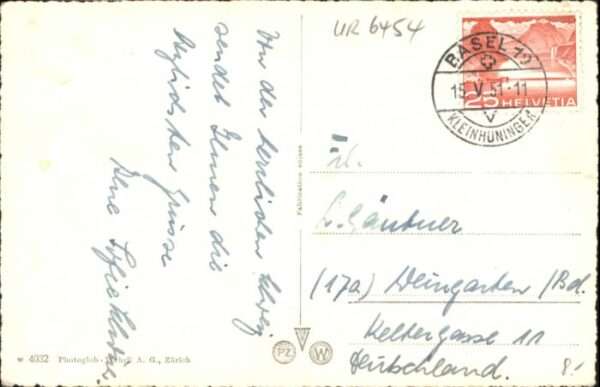 UR 6454
BASEL 12
15.V.51-11
V
KLEINHÜNINGEN
25 HELVETIA
Von der herrlichen Schweiz
sendet Ihnen die
herzlichsten Grüsse
Ihre
Fabrication suisse
L. Gäntner
(17a) Weingarten/Bd.
Keltergasse 11
Deutschland.
8.-
w 4032 Photoglob-Wehrli A. G., Zürich
PZ
W